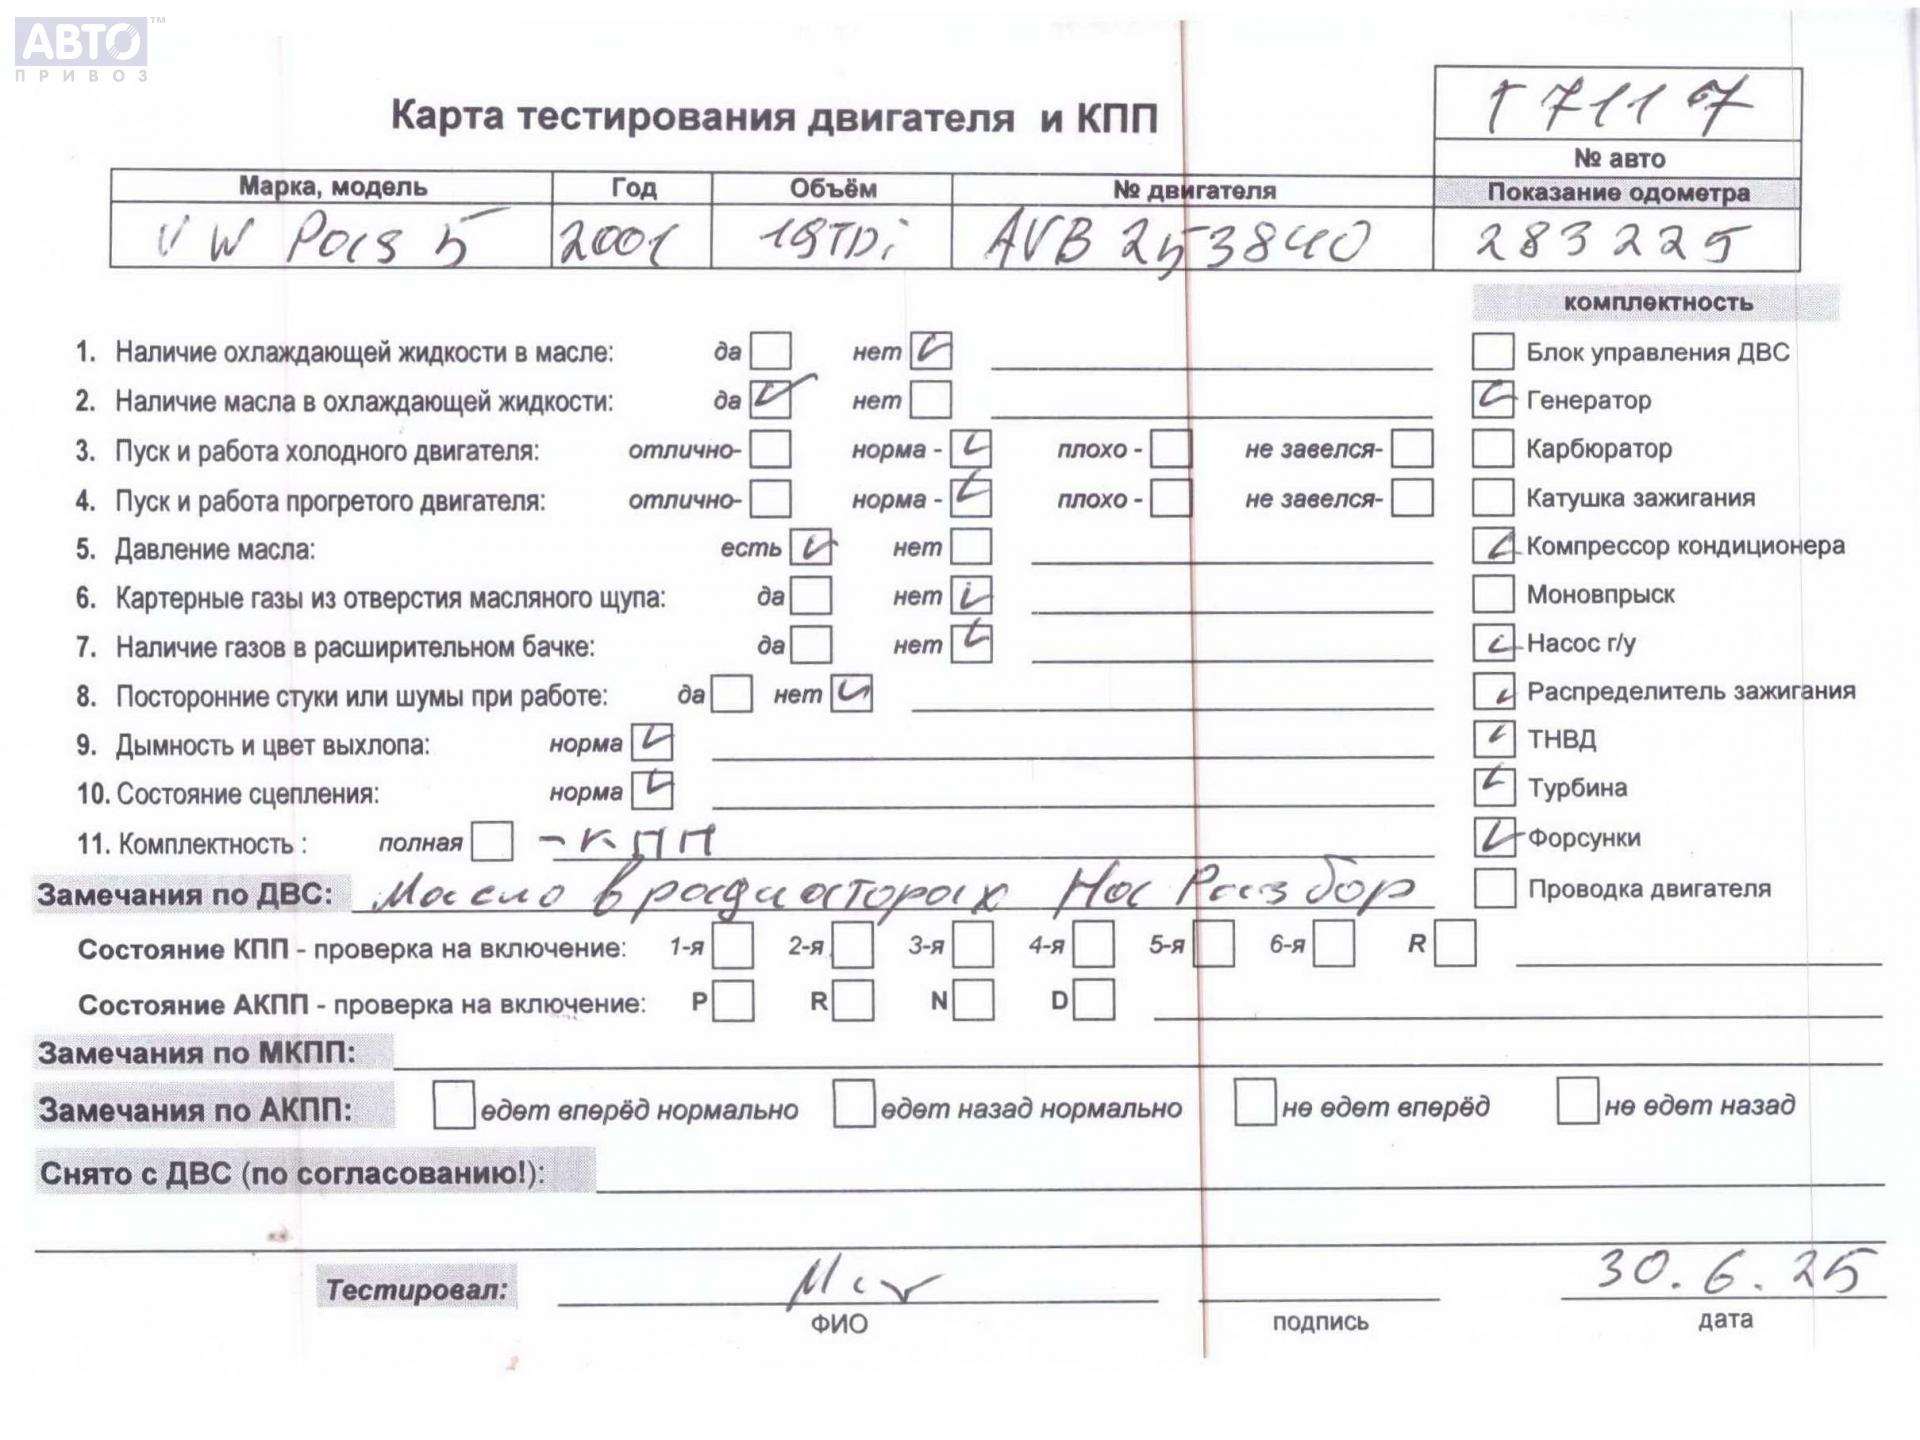 АВТО™
ПРИВОЗ
Т 7117
Карта тестирования двигателя и КПП
№ авто
Марка, модель Год Объём № двигателя Показание одометра
VW Pass 5 2001 19TDi AVB 253840 283225
комплектность
1. Наличие охлаждающей жидкости в масле: да нет Блок управления ДВС
2. Наличие масла в охлаждающей жидкости: да нет Генератор
3. Пуск и работа холодного двигателя: отлично- норма - плохо - не завелся- Карбюратор
4. Пуск и работа прогретого двигателя: отлично- норма - плохо - не завелся- Катушка зажигания
5. Давление масла: есть нет Компрессор кондиционера
6. Картерные газы из отверстия масляного щупа: да нет Моновпрыск
7. Наличие газов в расширительном бачке: да нет Насос г/у
8. Посторонние стуки или шумы при работе: да нет Распределитель зажигания
9. Дымность и цвет выхлопа: норма ТНВД
10. Состояние сцепления: норма Турбина
11. Комплектность : полная - КПП Форсунки
Замечания по ДВС: Масло в радиаторах На Разбор Проводка двигателя
Состояние КПП - проверка на включение: 1-я 2-я 3-я 4-я 5-я 6-я R
Состояние АКПП - проверка на включение: P R N D
Замечания по МКПП:
Замечания по АКПП: едет вперёд нормально едет назад нормально не едет вперёд не едет назад
Снято с ДВС (по согласованию!):
Тестировал: 30.6.25
ФИО подпись дата